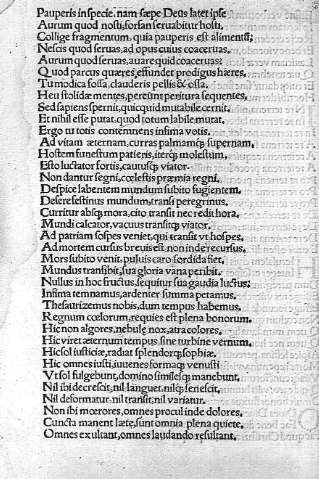 Pauperis in specie. nam sæpe Deus latet ipse
Aurum quod nosti, forsan seruabitur hosti,
Collige fragmentum, quia pauperis est alimentũ;
Nescis quod seruas, ad opus cuius coaceruas.
Aurum quod seruas, auare quid coaceruas:
Quod parcus quæres, effundet prodigus hæres,
Tu modica fossa, clauderis pellis & ossa.
Heu stolidæ mentes, perituri peritura sequentes,
Sed sapiens spernit, quicquid mutabile cernit.
Et nihil esse putat, quod totum labile mutat.
Ergo tu totis contemnens infima votis.
Ad vitam æternam, curras palmamq; supernam,
Hostem funestum patieris, iterq; molestum,
Esto luctator fortis, cautusq; viator.
Non dantur segni, cælestis præmia regni.
Despice labentem mundum subito fugientem.
Desere festinus mundum, transi peregrinus.
Curritur absq; mora, cito transit nec redit hora.
Mundi calcator, vacuus transitq; viator.
Ad patriam sospes veniet, qui transit vt hospes.
Ad mortem cursus breuis est, non inde recursus.
Mors subito venit, puluis caro sordida fiet.
Mundus transibit, sua gloria vana peribit.
Nullus in hoc fructus, sequitur sua gaudia luctus;
Infima temnamus, ardenter summa petamus.
Thesaurizemus nobis, dum tempus habemus.
Regnum cœlorum, requies est plena bonorum.
Hic non algores, nebulę nox, atra colores.
Hic viret æternum tempus sine turbine vernum,
Hic sol iusticiæ, radiat splendorq; sophiæ.
Hic omnes iusti, iuuenes formaq; venusti
Vt sol fulgebunt, domino similesq; manebunt.
Nil ibi decrescit, nil languet, nilq; senescit.
Nil deformatur, nil transit, nil variatur.
Non ibi mœrores, omnes procul inde dolores.
Cuncta manent læte, sunt omnia plena quiete.
Omnes exultant, omnes laudando resultant,